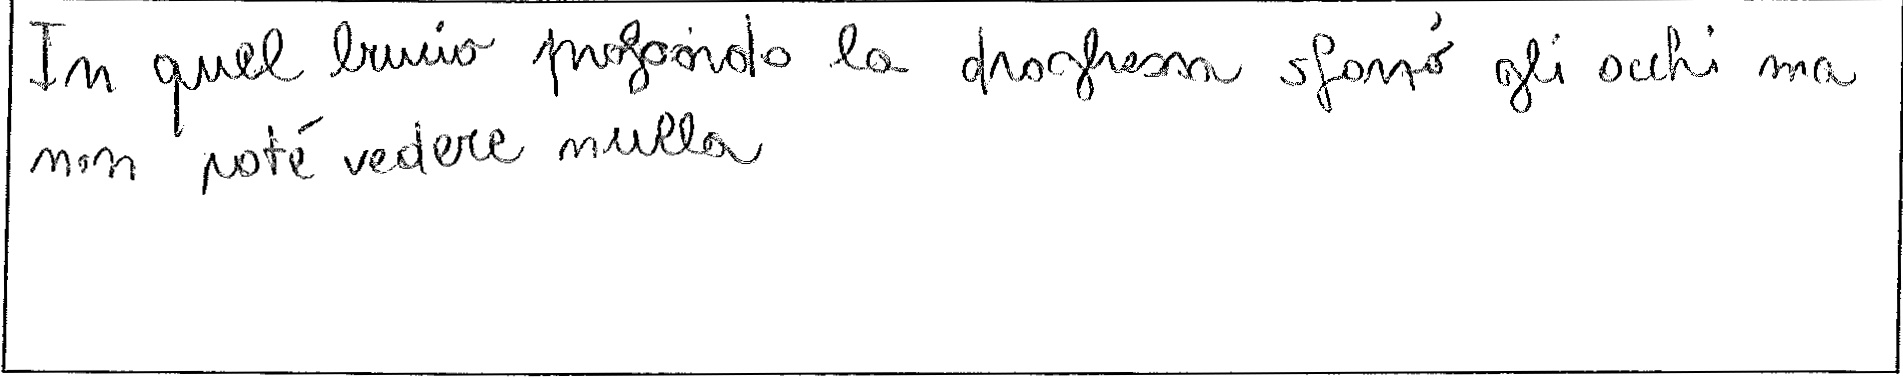 In quel bruio profondo la droghessa sforzò gli occhi ma
non poté vedere nulla